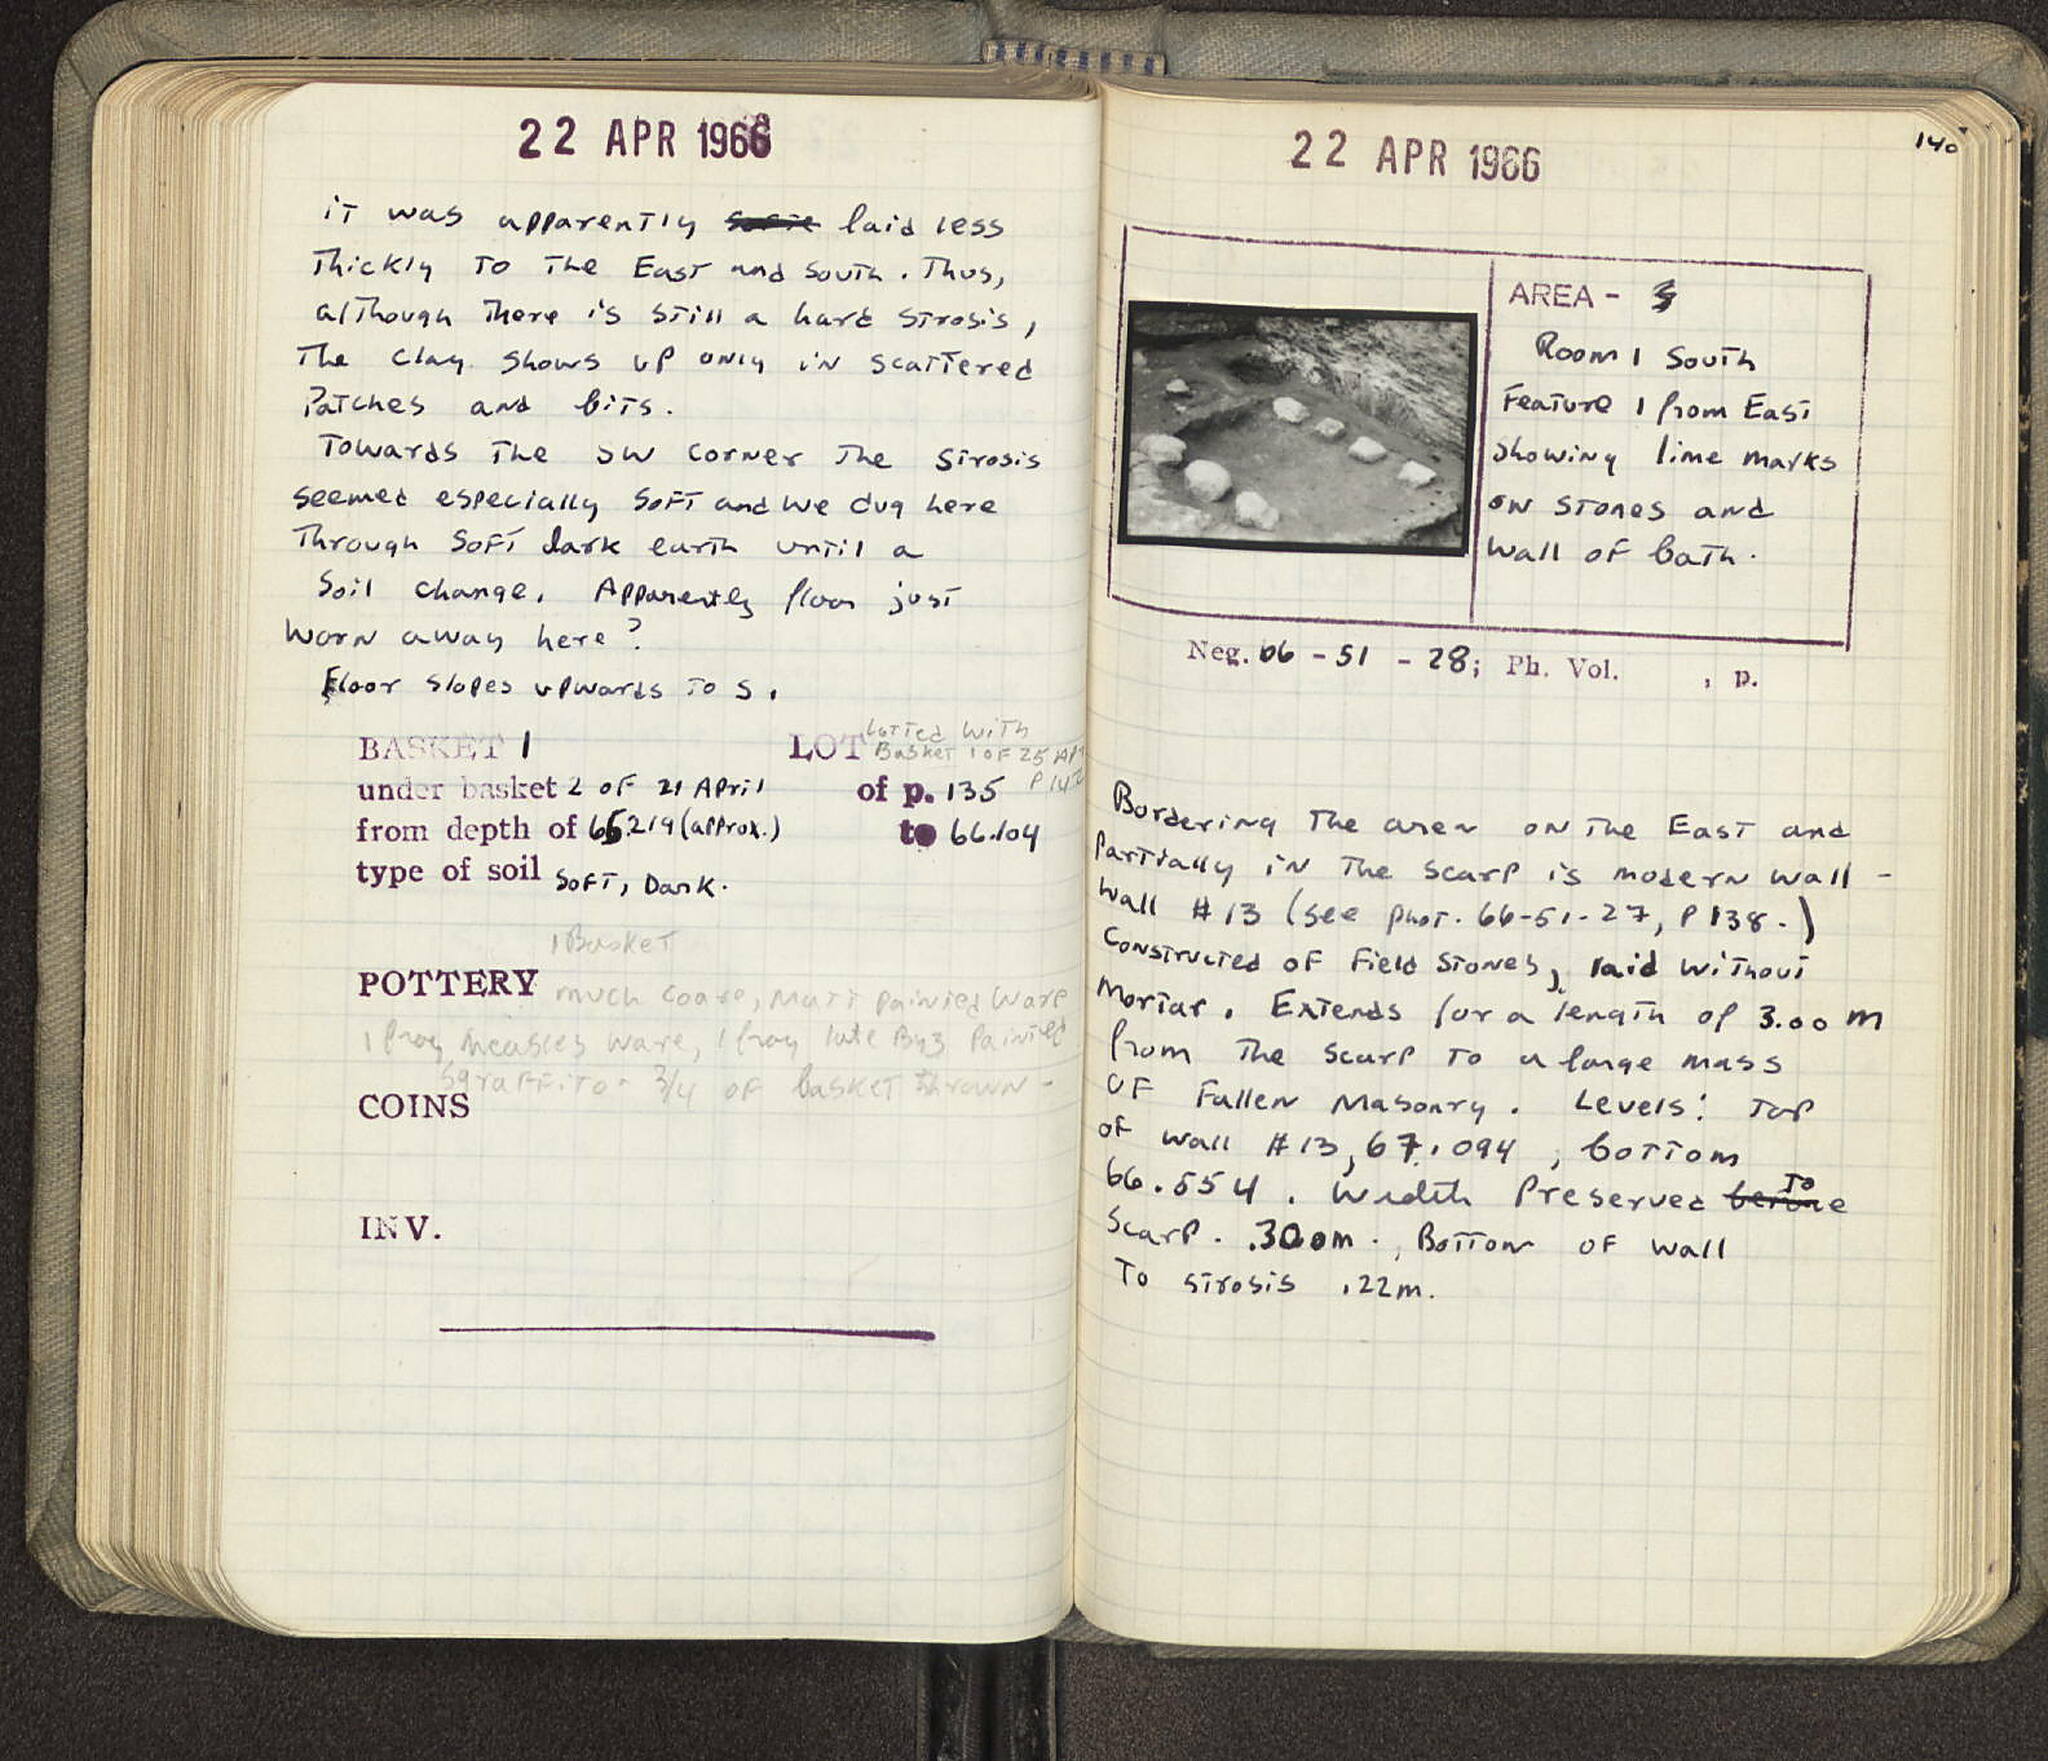 22 APR 1966
it was apparently laid less
thickly to the East and South. Thus,
although there is still a hard strosis,
the clay shows up only in scattered
patches and bits.
Towards the SW corner the strosis
seemed especially soft and we dug here
through soft dark earth until a
soil change. Apparently floor just
worn away here?
Floor slopes upwards to S.
BASKET 1
LOT Lotted with
Basket 1 of 25 Apr
P 142
under basket 2 of 21 April
of p. 135
from depth of 66.219 (approx.)
to 66.104
type of soil Soft, Dark.
1 Basket
POTTERY much coarse, Matt painted Ware
1 frag Measles Ware, 1 frag late Byz Painted
Sgraffito. 3/4 of basket thrown -
COINS
INV.
140
22 APR 1966
AREA -
Room 1 South
Feature 1 from East
showing lime marks
on stones and
wall of bath.
Neg. 66 - 51 - 28; Ph. Vol. , p.
Bordering the area on the East and
partially in the scarp is modern wall -
wall #13 (see phot. 66-51-27, P 138.)
Constructed of field stones, laid without
mortar. Extends for a length of 3.00 m
from the scarp to a large mass
of fallen masonry. Levels: Top
of wall #13, 67.094, bottom
66.554. Width Preserved to
scarp. .300m., Bottom of wall
to strosis .22m.